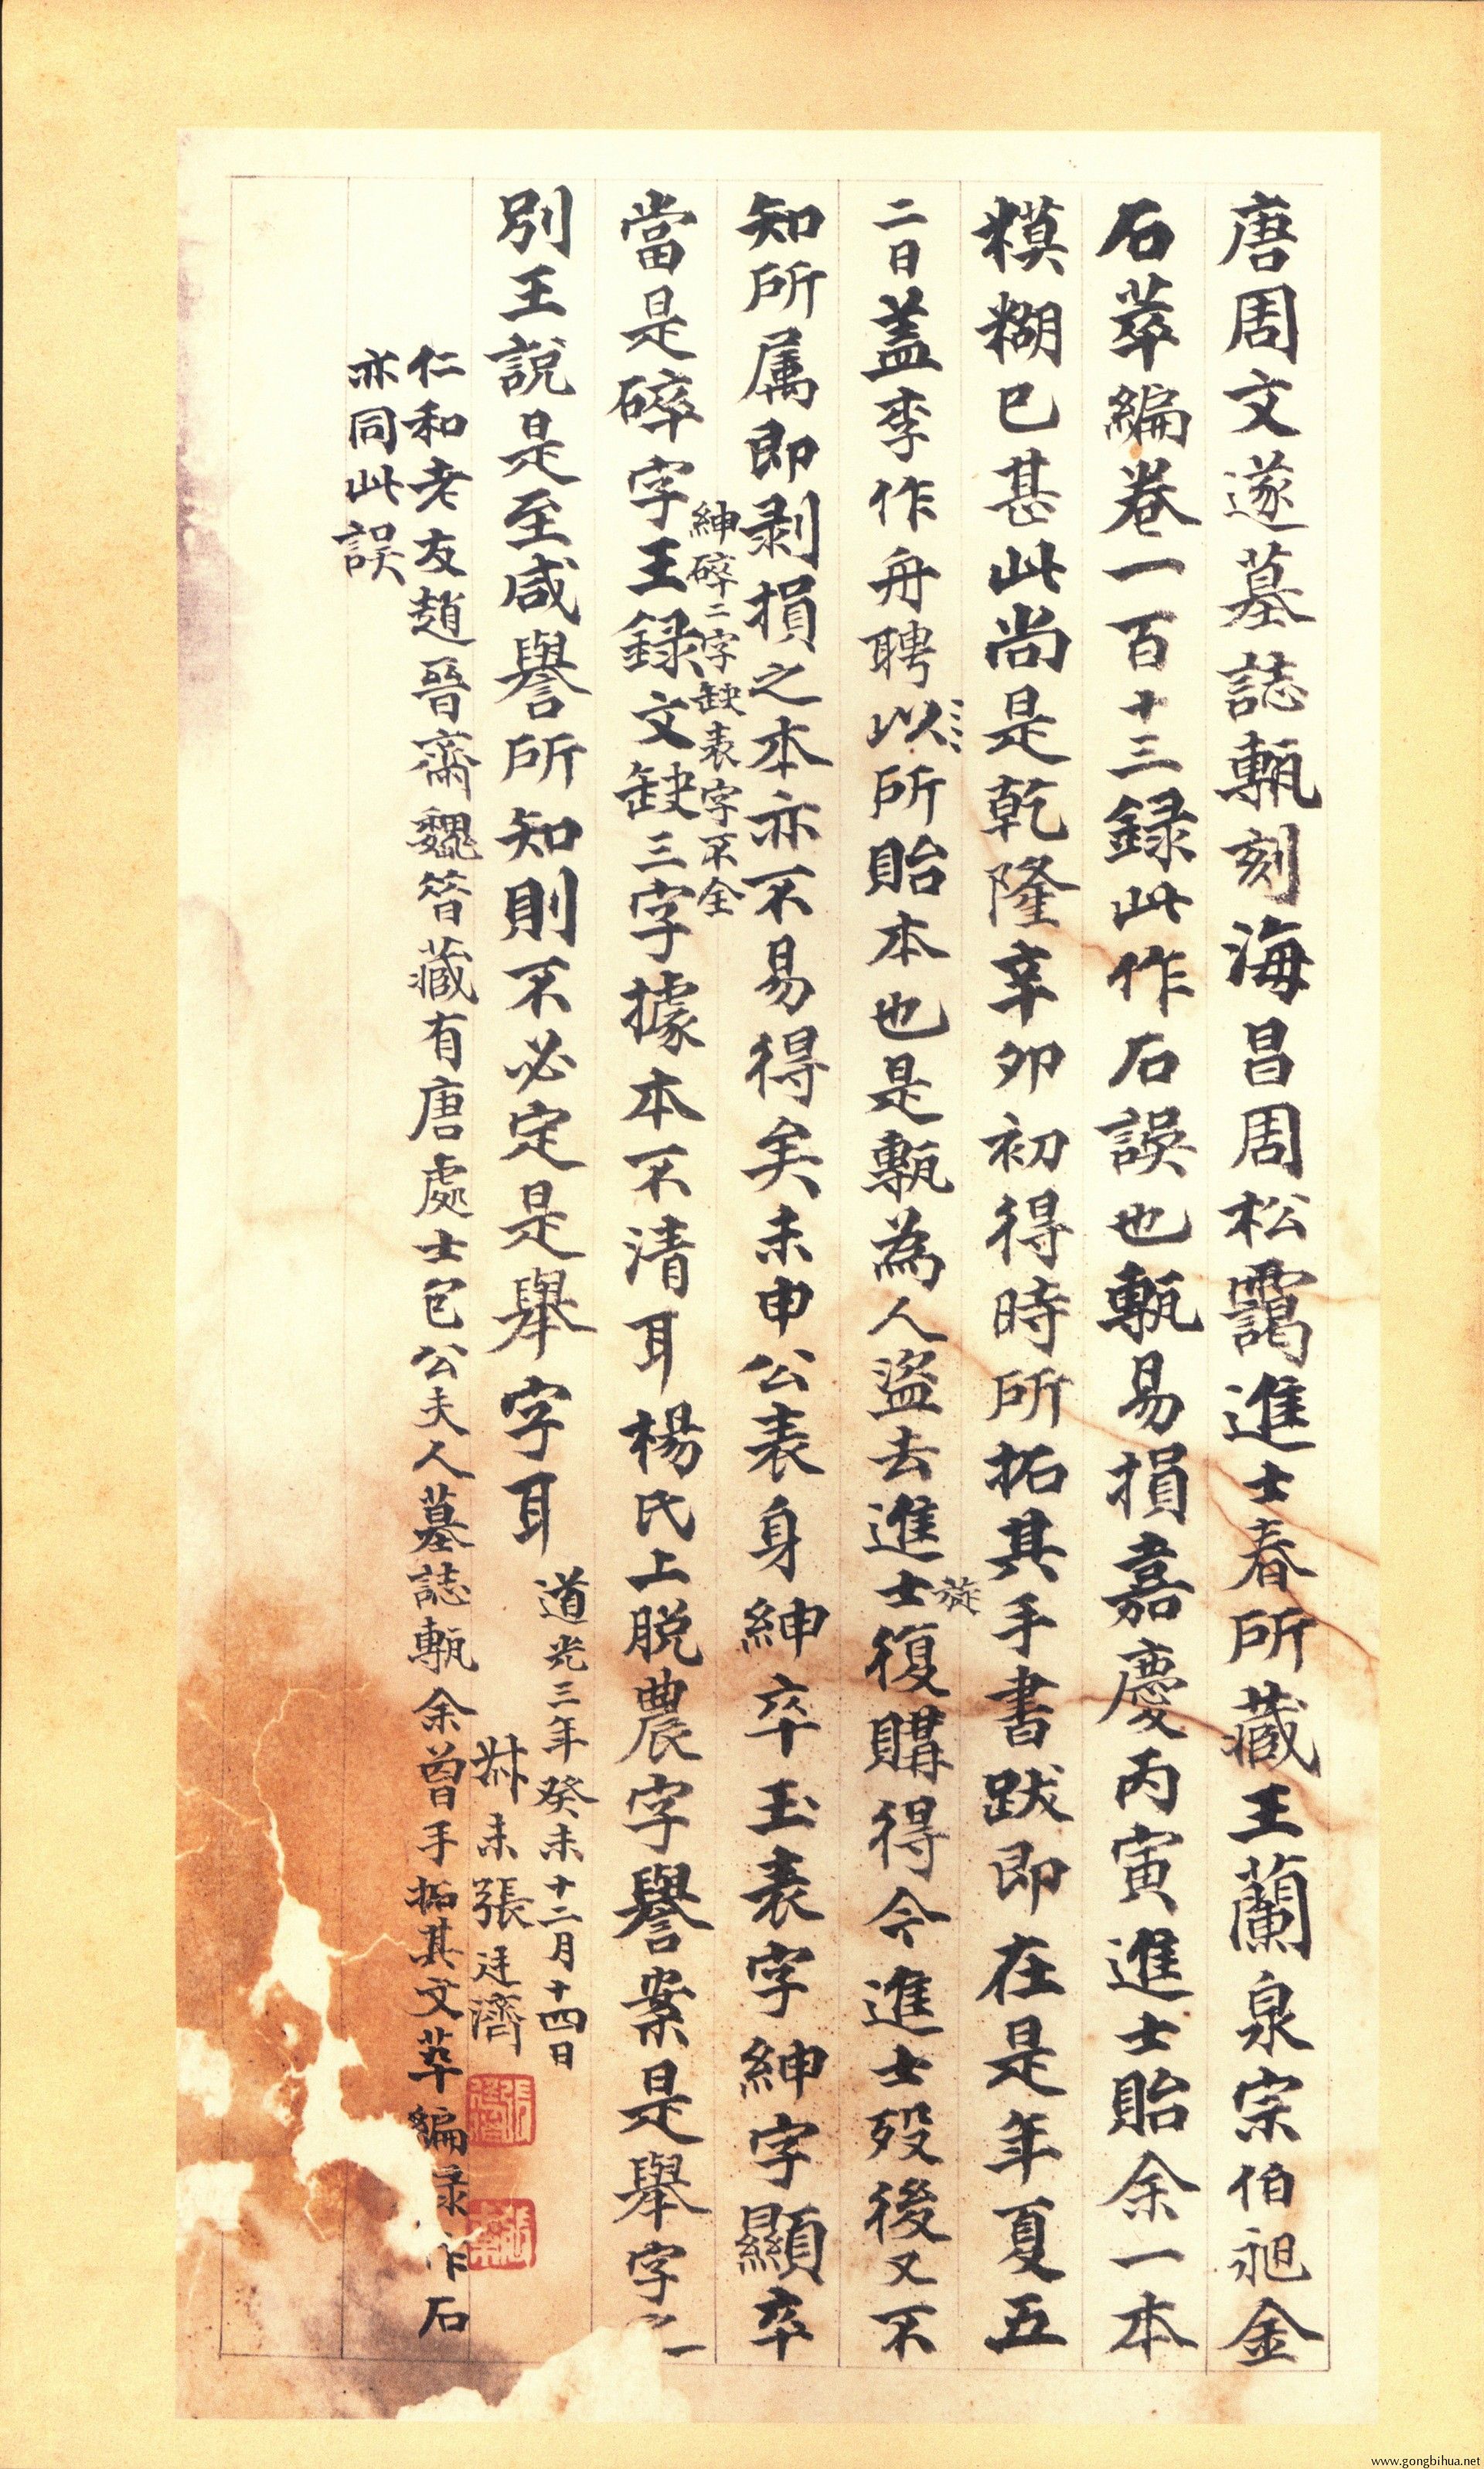 唐周文遂墓誌甎刻海昌周松靄進士春所藏王蘭泉宗伯昶金
石萃編卷一百十三録此作石誤也甎易損嘉慶丙寅進士貽余一本
糢糊已甚此尚是乾隆辛卯初得時所拓其手書跋即在是年夏五
二日蓋李作舟聘以所貽本也是甎為人盜去進士旋復購得今進士歿後又不
知所属即剥損之本亦不易得矣未申公表身紳卒玉表字紳字顯卒
紳碎二字缺表字不全
當是碎字王録文缺三字據本不清耳楊氏上脱農字譽案是舉字之一
別王說是至咸譽所知則不必定是舉字耳
道光三年癸未十二月十四日
叔未張廷濟
仁和老友趙晉齋魏笤藏有唐處士包公夫人墓誌甎余曾手拓其文萃編录作石
亦同此誤
www.gongbihua.net